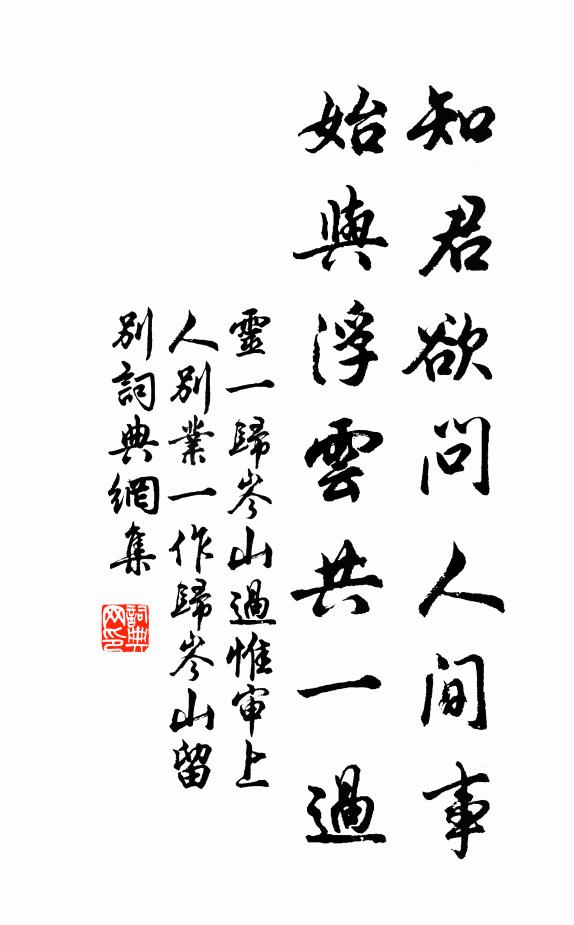 知君欲問人間事
始與浮雲共一過
靈一歸岑山過惟審上
人別業一作歸岑山留
別詞典網集
詞典网印